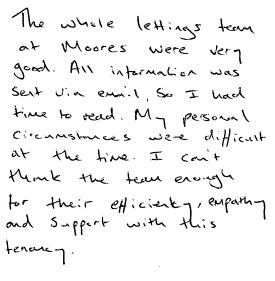 The whole lettings team
at Moores were very
good. All information was
sent via email, so I had
time to read. My personal
circumstances were difficult
at the time. I can't
thank the team enough
for their efficienky, empathy
and support with this
tenancy.